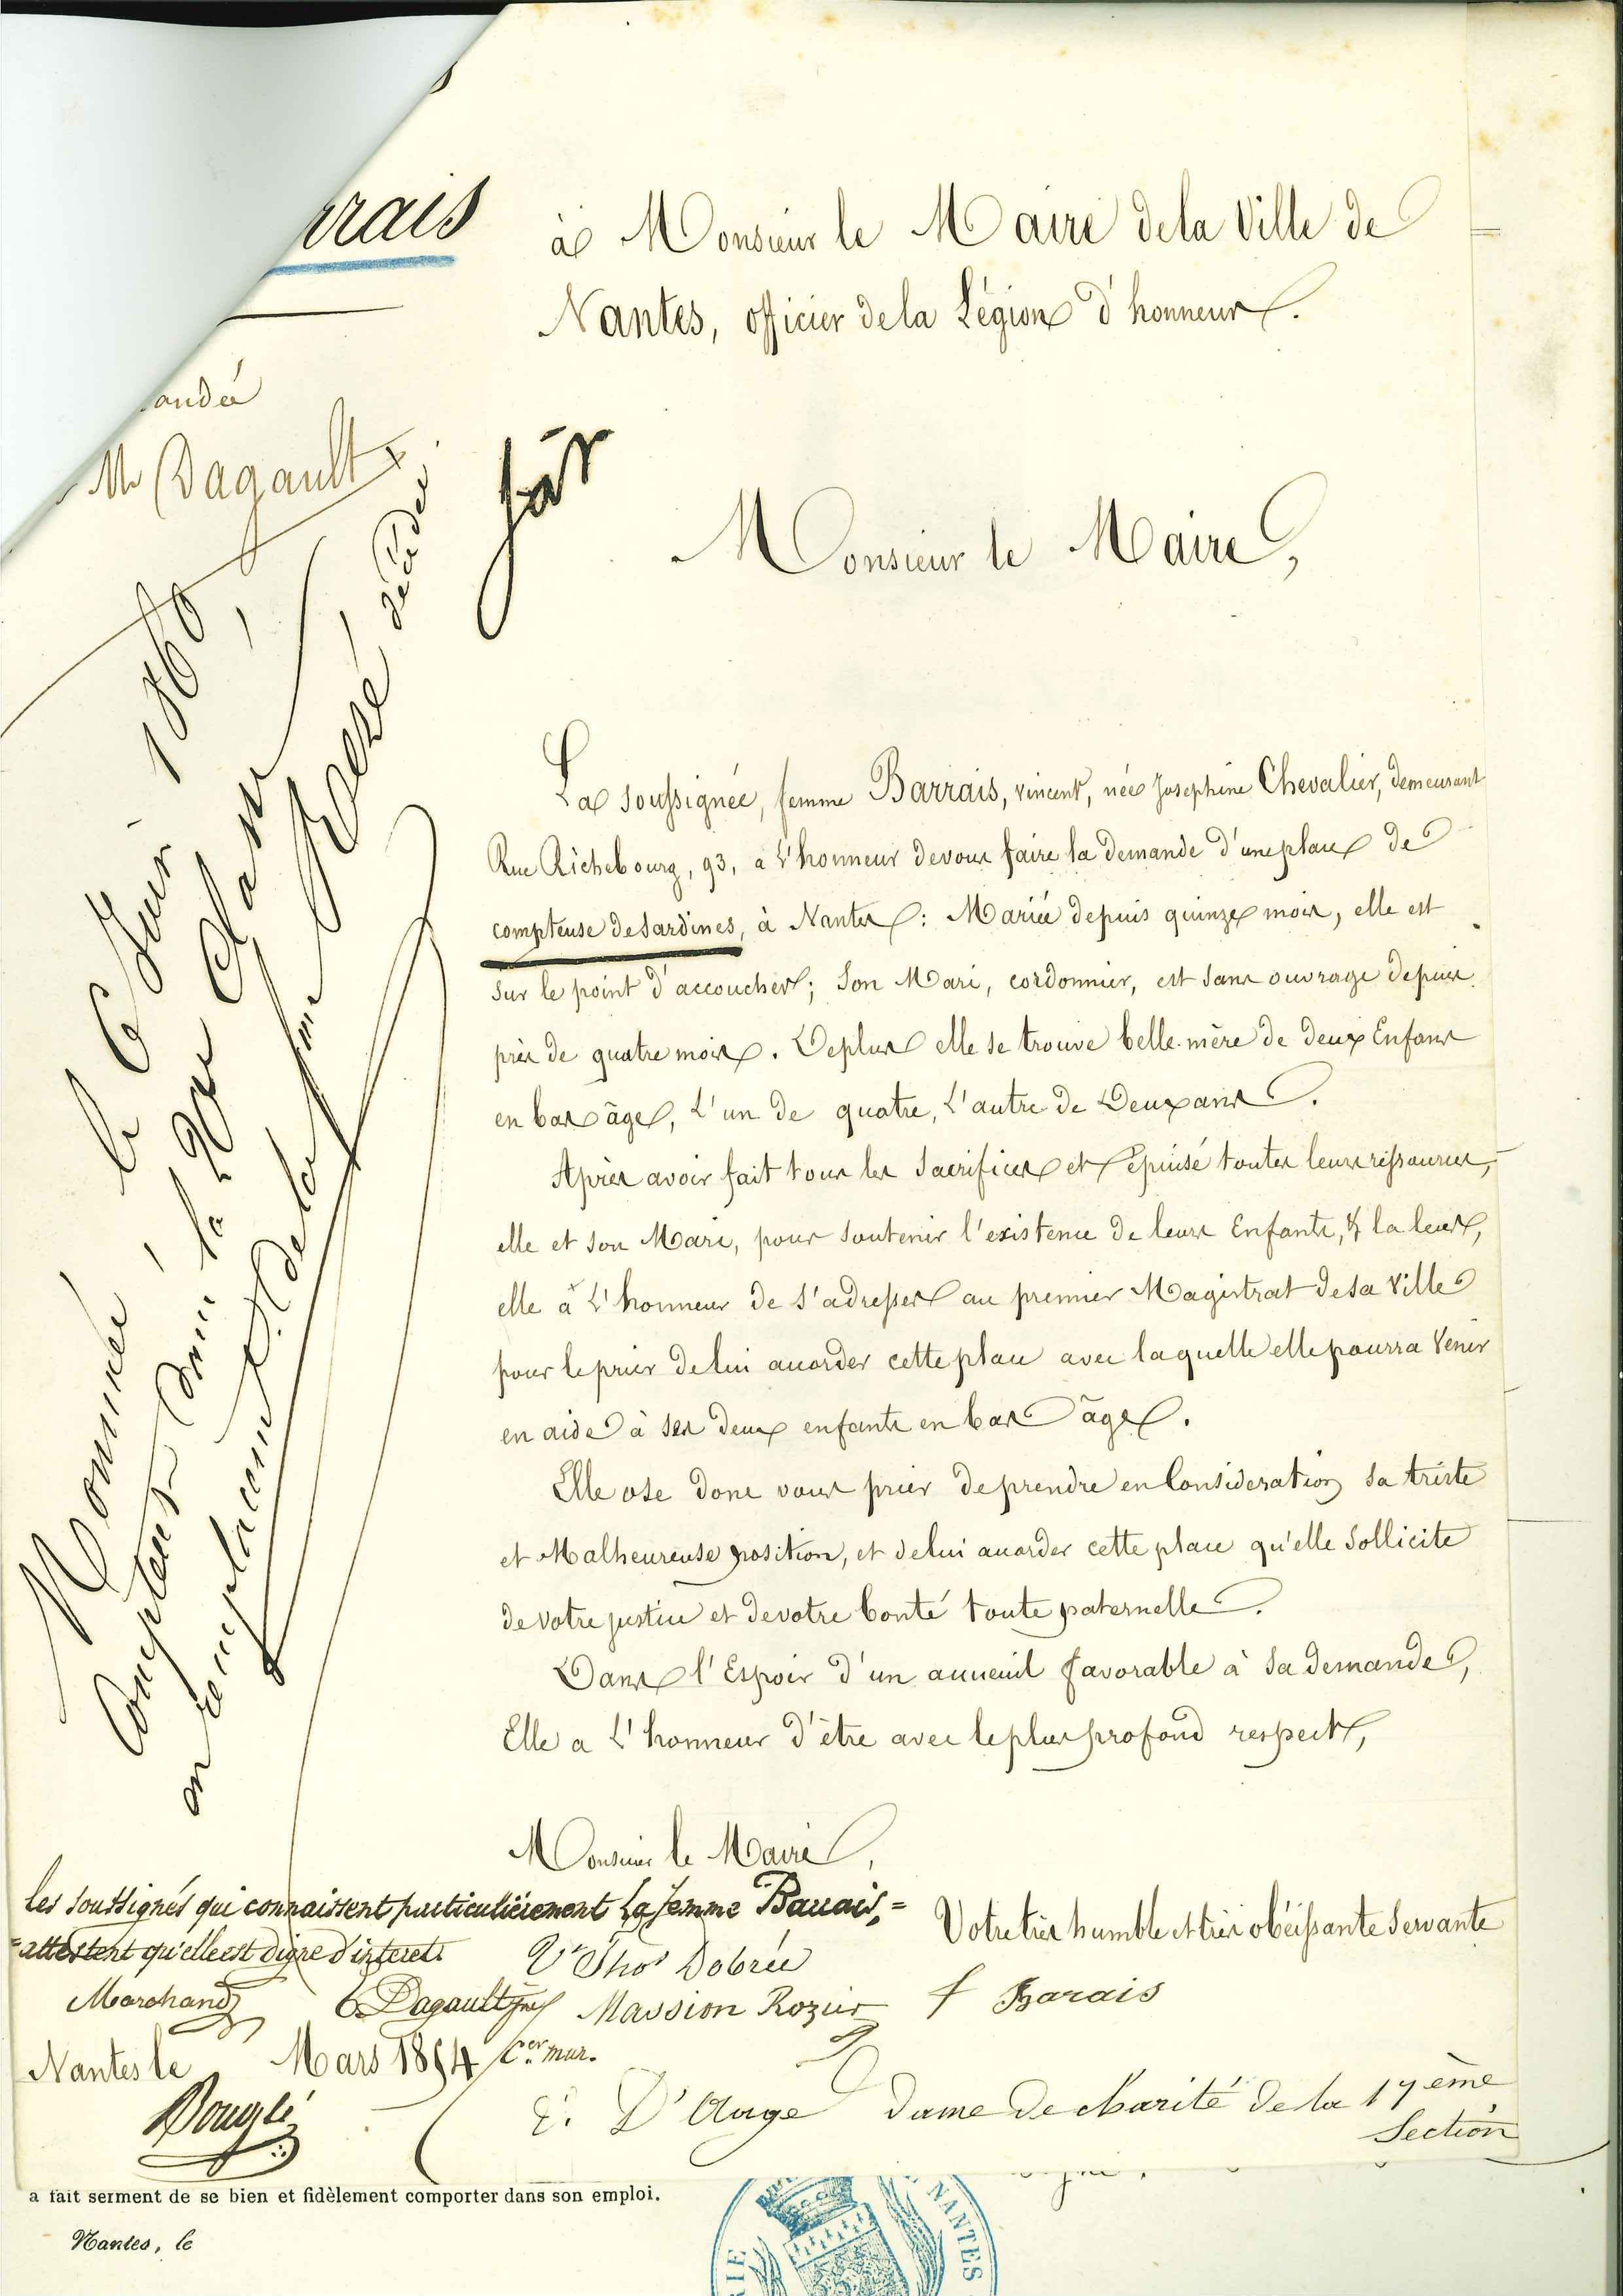 rrais
andée
Mr Dagault
à Monsieur le Maire de la Ville de
Nantes, officier de la Légion d'honneur.
Monsieur le Maire,
La soussignée, femme Barrais, vincent, née Josephine Chevalier, demeurant
Rue Richebourg, 93, a l'honneur de vous faire la demande d'une place de
compteuse de sardines, à Nantes : Mariée depuis quinze mois, elle est
sur le point d'accoucher ; son Mari, cordonnier, est sans ouvrage depuis
près de quatre mois. De plus elle se trouve belle-mère de deux Enfans
en bas âge, l'un de quatre, l'autre de Deux ans.
Après avoir fait tous les sacrifices et épuisé toutes leurs ressources,
elle et son Mari, pour soutenir l'existence de leurs Enfants, & la leur,
elle à l'honneur de s'adresser au premier Magistrat de sa Ville
pour le prier de lui accorder cette place avec laquelle elle pourra Venir
en aide à ses deux enfants en bas âge.
Elle ose donc vous prier de prendre en Considération sa triste
et Malheureuse position, et de lui accorder cette place qu'elle sollicite
de votre justice et de votre bonté toute paternelle.
Dans l'Espoir d'un accueuil favorable à sa demande,
Elle a l'honneur d'être avec le plus profond respect,
Monsieur le Maire,
Votre très humble et très obéissante Servante
f Barais
Nommée le 6 Juin 1860,
Compteuse dans la 2de Classe
en remplacement de la fme décédée
les soussignés qui connaissent particulièrement La femme Barrais,=
=attestent qu'elle est digne d'interet.
Vve Thos Dobrée
Marchand
C. Dagault jne
Massion Rozier
Cer mun.
Nantes le Mars 1854
E. D'Auge dame de charité de la 17ème
Section
a fait serment de se bien et fidèlement comporter dans son emploi.
Nantes, le
RIE
NANTES